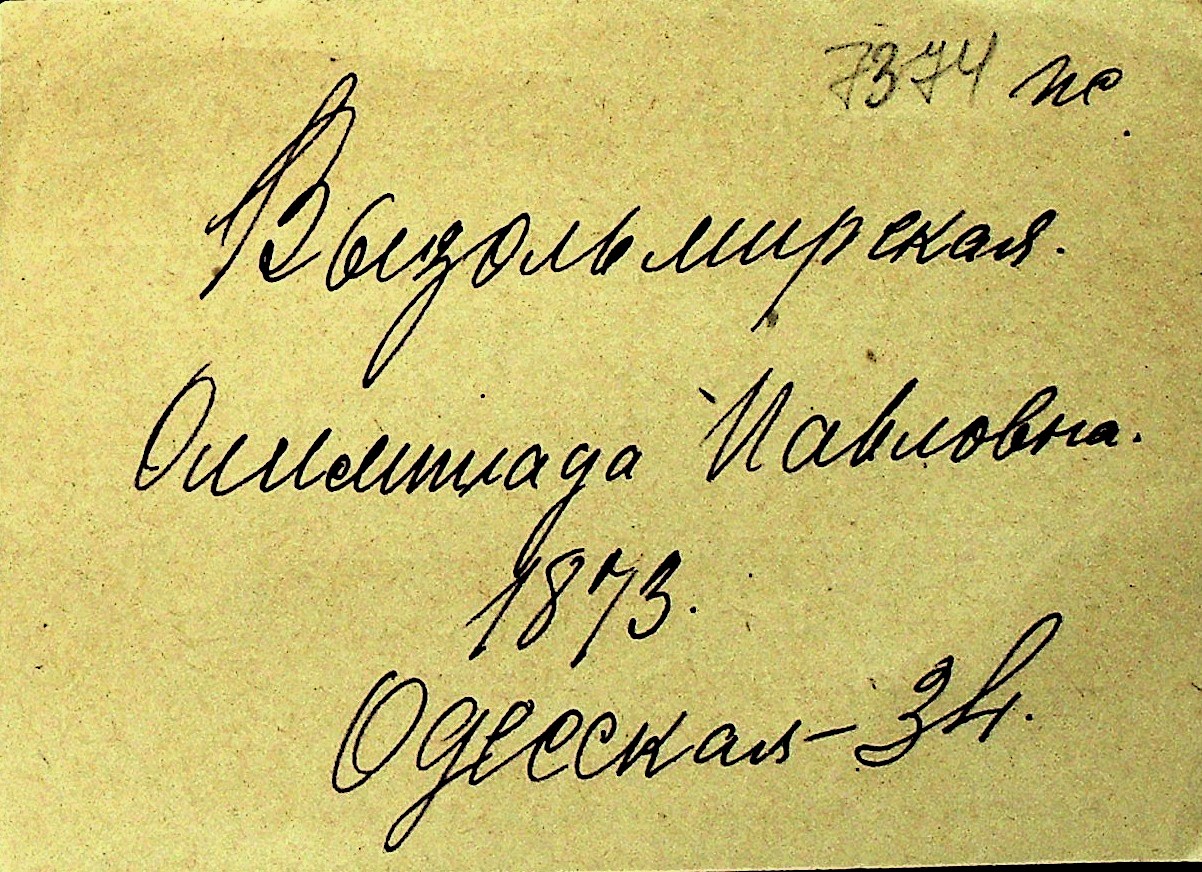 7374
Вызольмирская.
Олимпиада Павловна.
1873.
Одесская – 34.